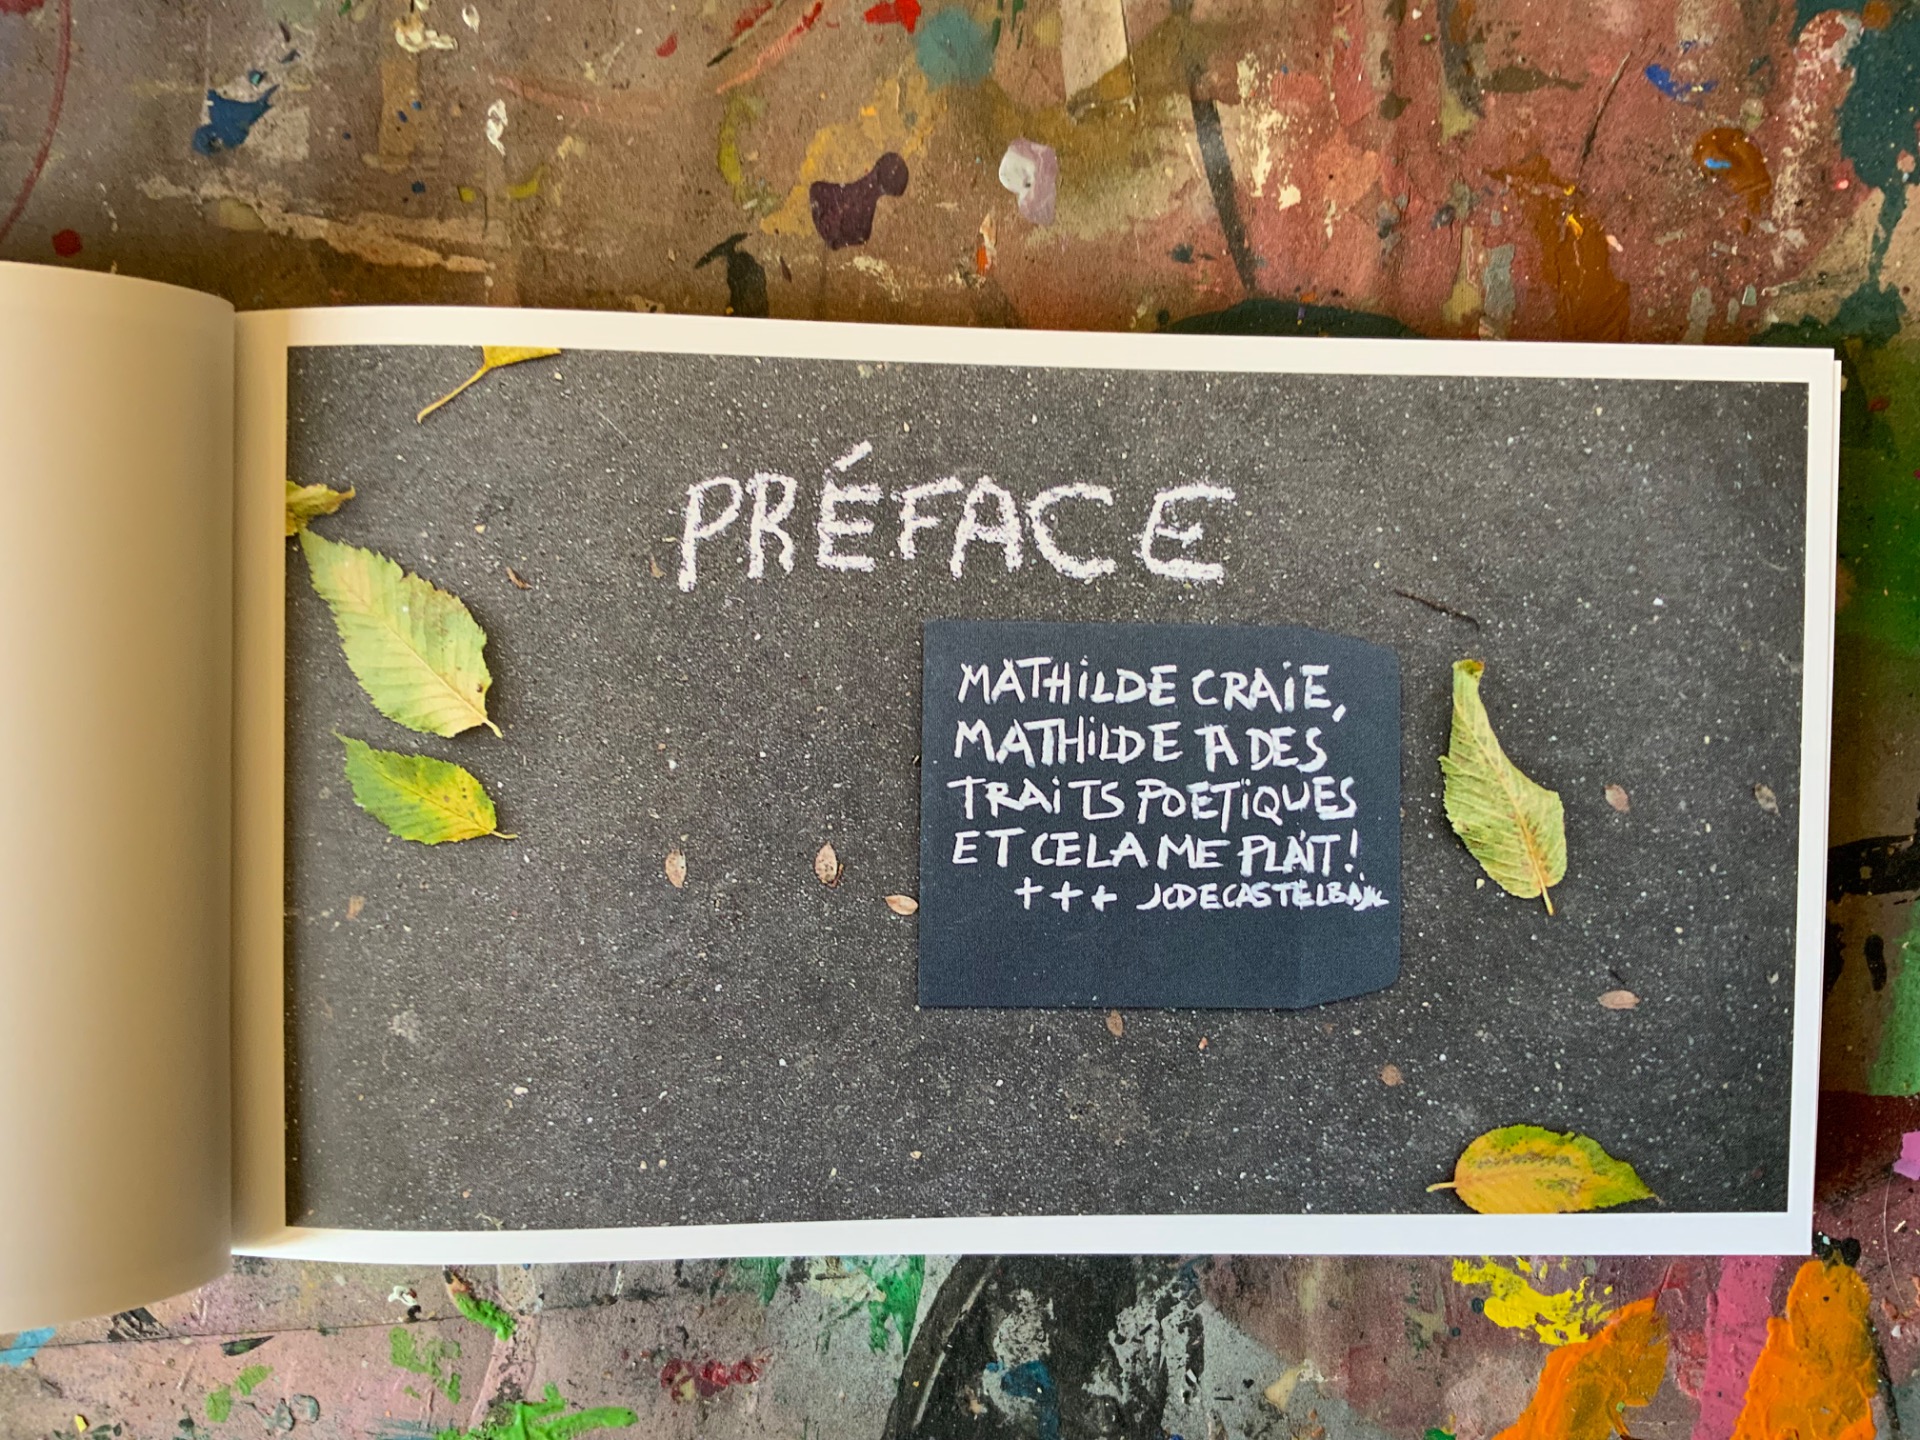 PRÉFACE
MATHiLDE CRAiE,
MATHiLDE A DES
TRAiTS POETiQUES
ET CELA ME PLAÎT!
+++ JCDECASTELBAJAC